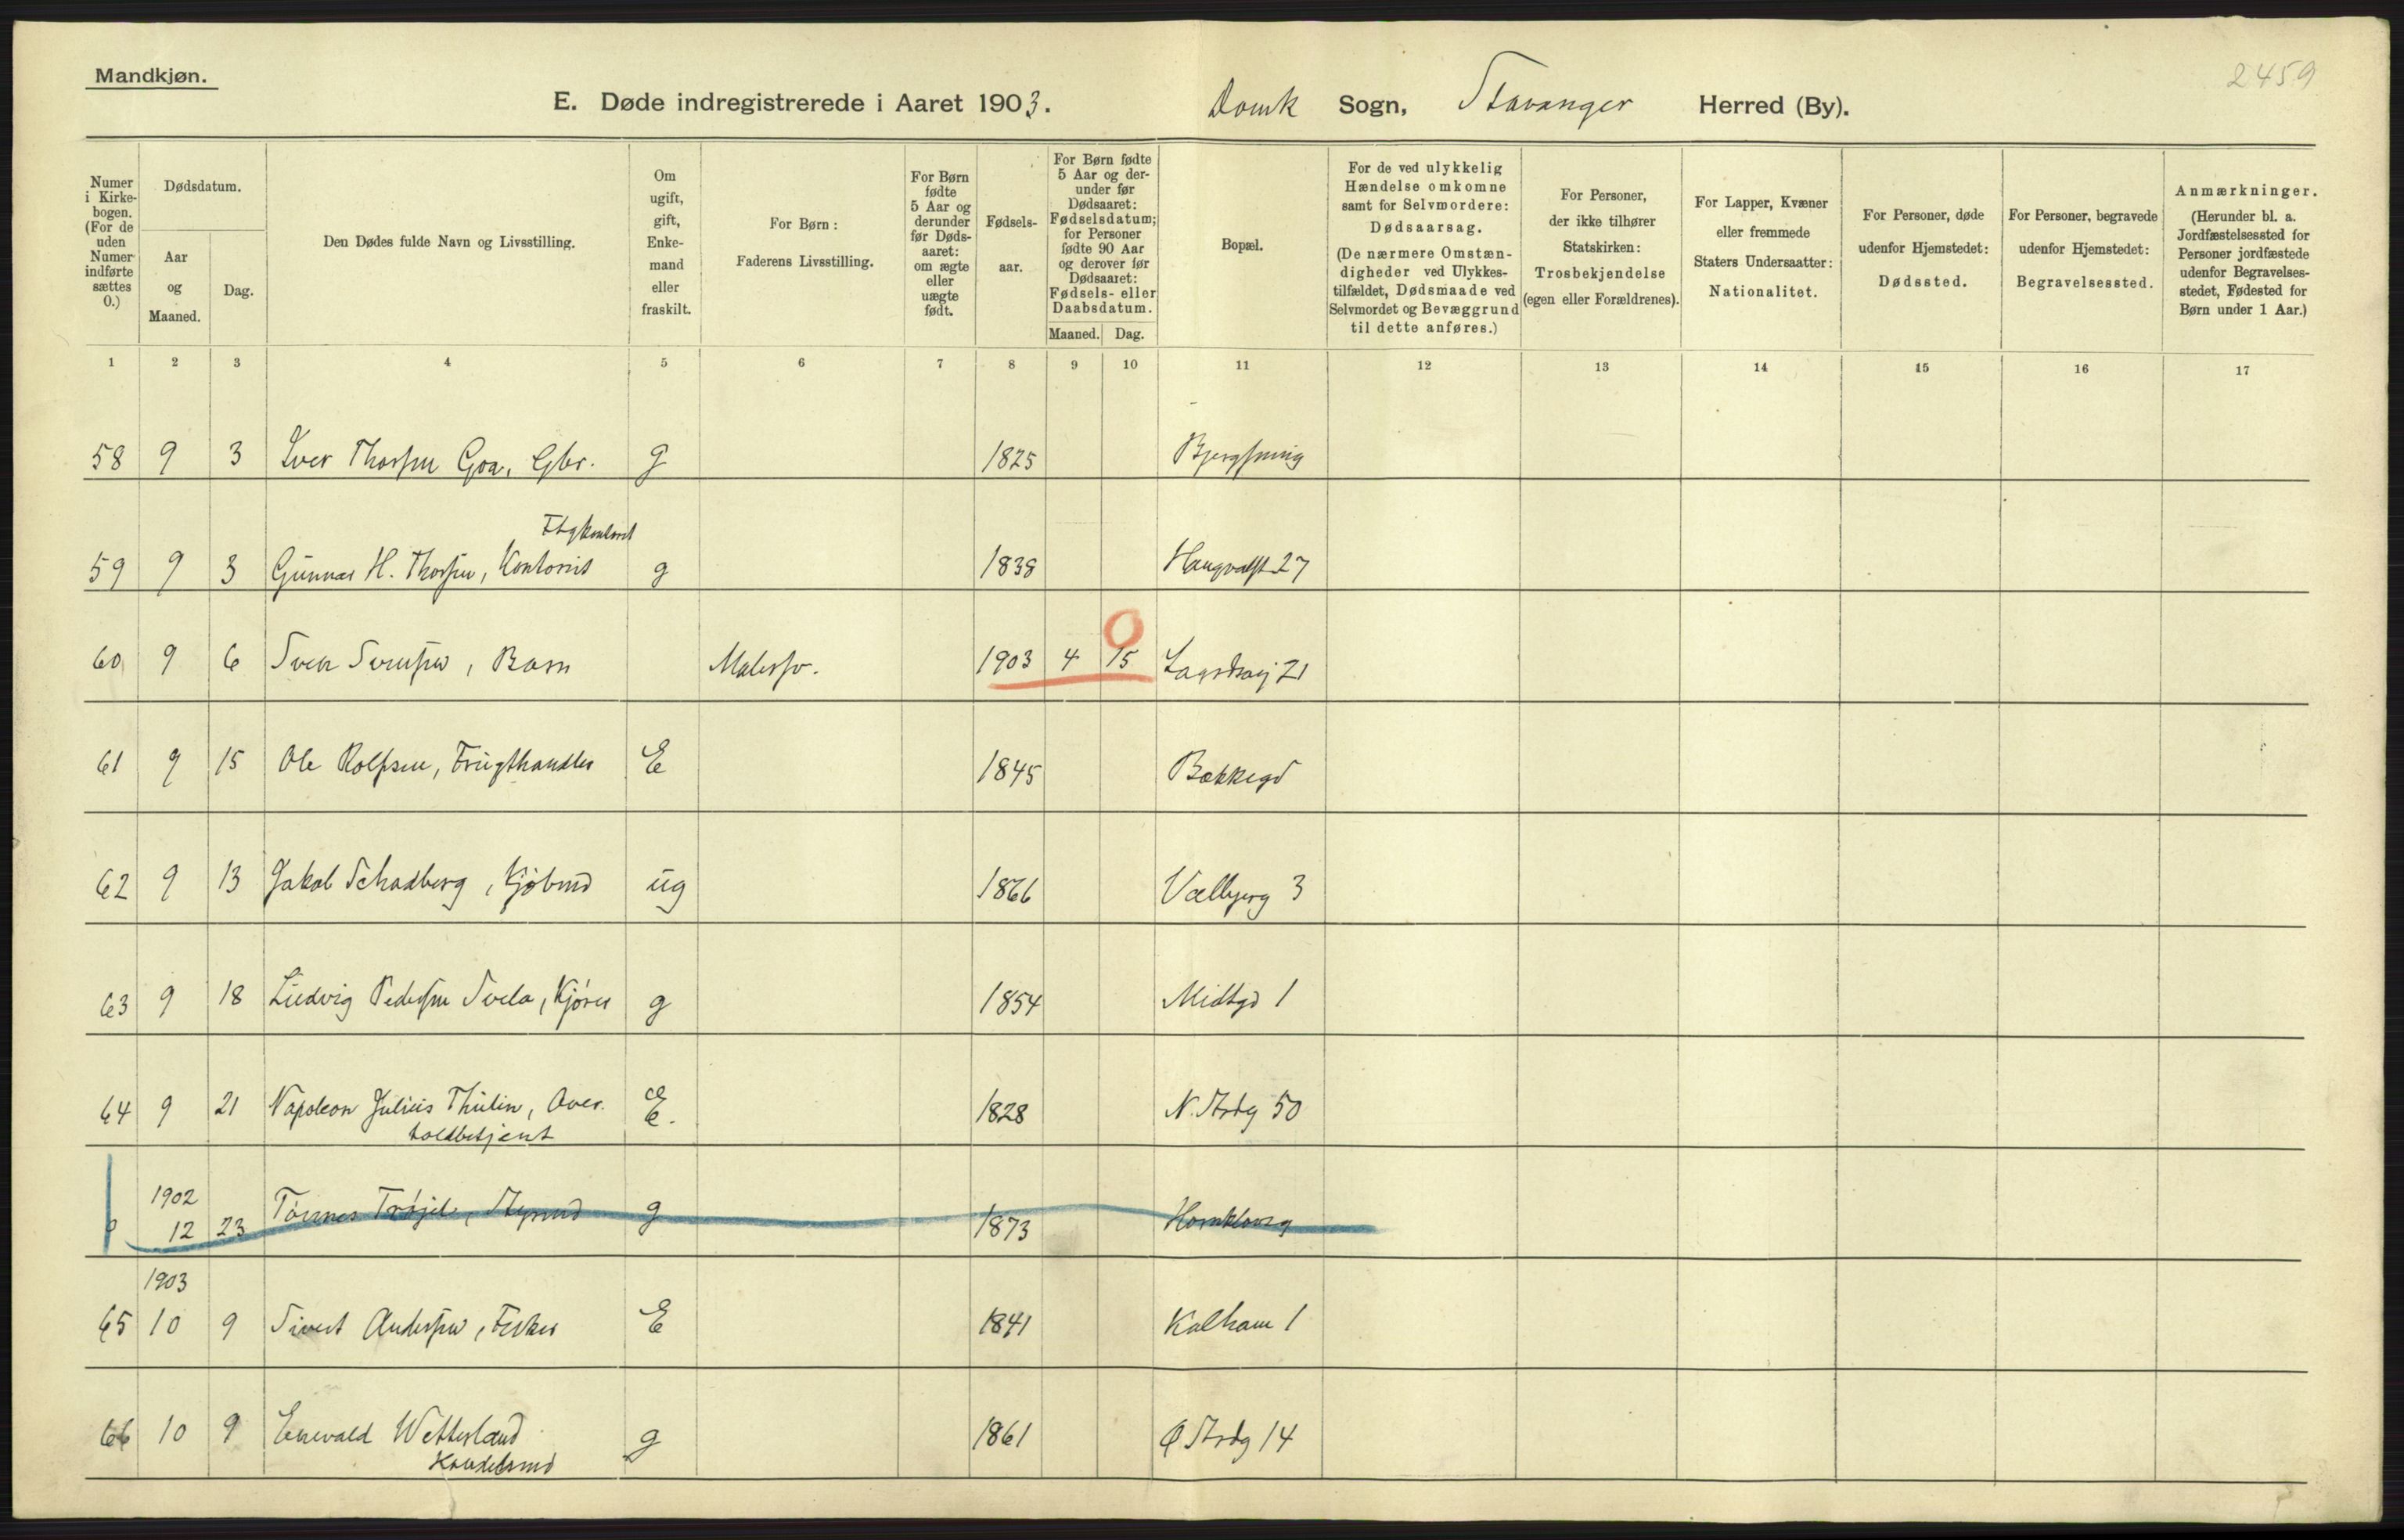 Mandkjøn.
2459
E. Døde indregistrerede i Aaret 1903. Domk Sogn, Stavanger Herred (By).
Numer i Kirkebogen. (For de uden Numer indførte sættes 0.)
Dødsdatum.
Aar og Maaned.
Dag.
Den Dødes fulde Navn og Livsstilling.
Om ugift, gift, Enkemand eller fraskilt.
For Børn: Faderens Livsstilling.
For Børn fødte 5 Aar og derunder før Dødsaaret: om ægte eller uægte født.
Fødselsaar.
For Børn fødte 5 Aar og derunder før Dødsaaret: Fødselsdatum; for Personer fødte 90 Aar og derover før Dødsaaret: Fødsels- eller Daabsdatum.
Maaned. Dag.
Bopæl.
For de ved ulykkelig Hændelse omkomne samt for Selvmordere: Dødsaarsag. (De nærmere Omstændigheder ved Ulykkestilfældet, Dødsmaade ved Selvmordet og Bevæggrund til dette anføres.)
For Personer, der ikke tilhører Statskirken: Trosbekjendelse (egen eller Forældrenes).
For Lapper, Kvæner eller fremmede Staters Undersaatter: Nationalitet.
For Personer, døde udenfor Hjemstedet: Dødssted.
For Personer, begravede udenfor Hjemstedet: Begravelsessted.
Anmærkninger. (Herunder bl. a. Jordfæstelsessted for Personer jordfæstede udenfor Begravelsesstedet, Fødested for Børn under 1 Aar.)
1 2 3 4 5 6 7 8 9 10 11 12 13 14 15 16 17
58 9 3 Iver Thorsen Goa, Gbr. g 1825
59 9 3 Gunnar H. Thorsen, Kontorist g 1838 Haugvaldst 27
60 9 6 Sven Svensen, Barn Malersv. 1903 4 15 21
0
61 9 15 Ole Rolfsen, Frugthandler E 1845 Bakkegd
62 9 13 Jakob Schadberg, Kjøbmd ug 1866 Valbjerg 3
63 9 18 Ludvig Pedersen Svela, Kjører g 1854 Midtgd 1
64 9 21 Napoleon Julius Thulin, Over- E. 1828 N. Strdg 50
toldbetjent
1902
0 12 23 Tønnes Styrmd g 1873 Hornkloveg
1903
65 10 9 Sivert Andersen, Fisker E 1841 Kalham 1
66 10 9 Enevald Wetterland g 1861 Ø Strdg 14
Handelsmd